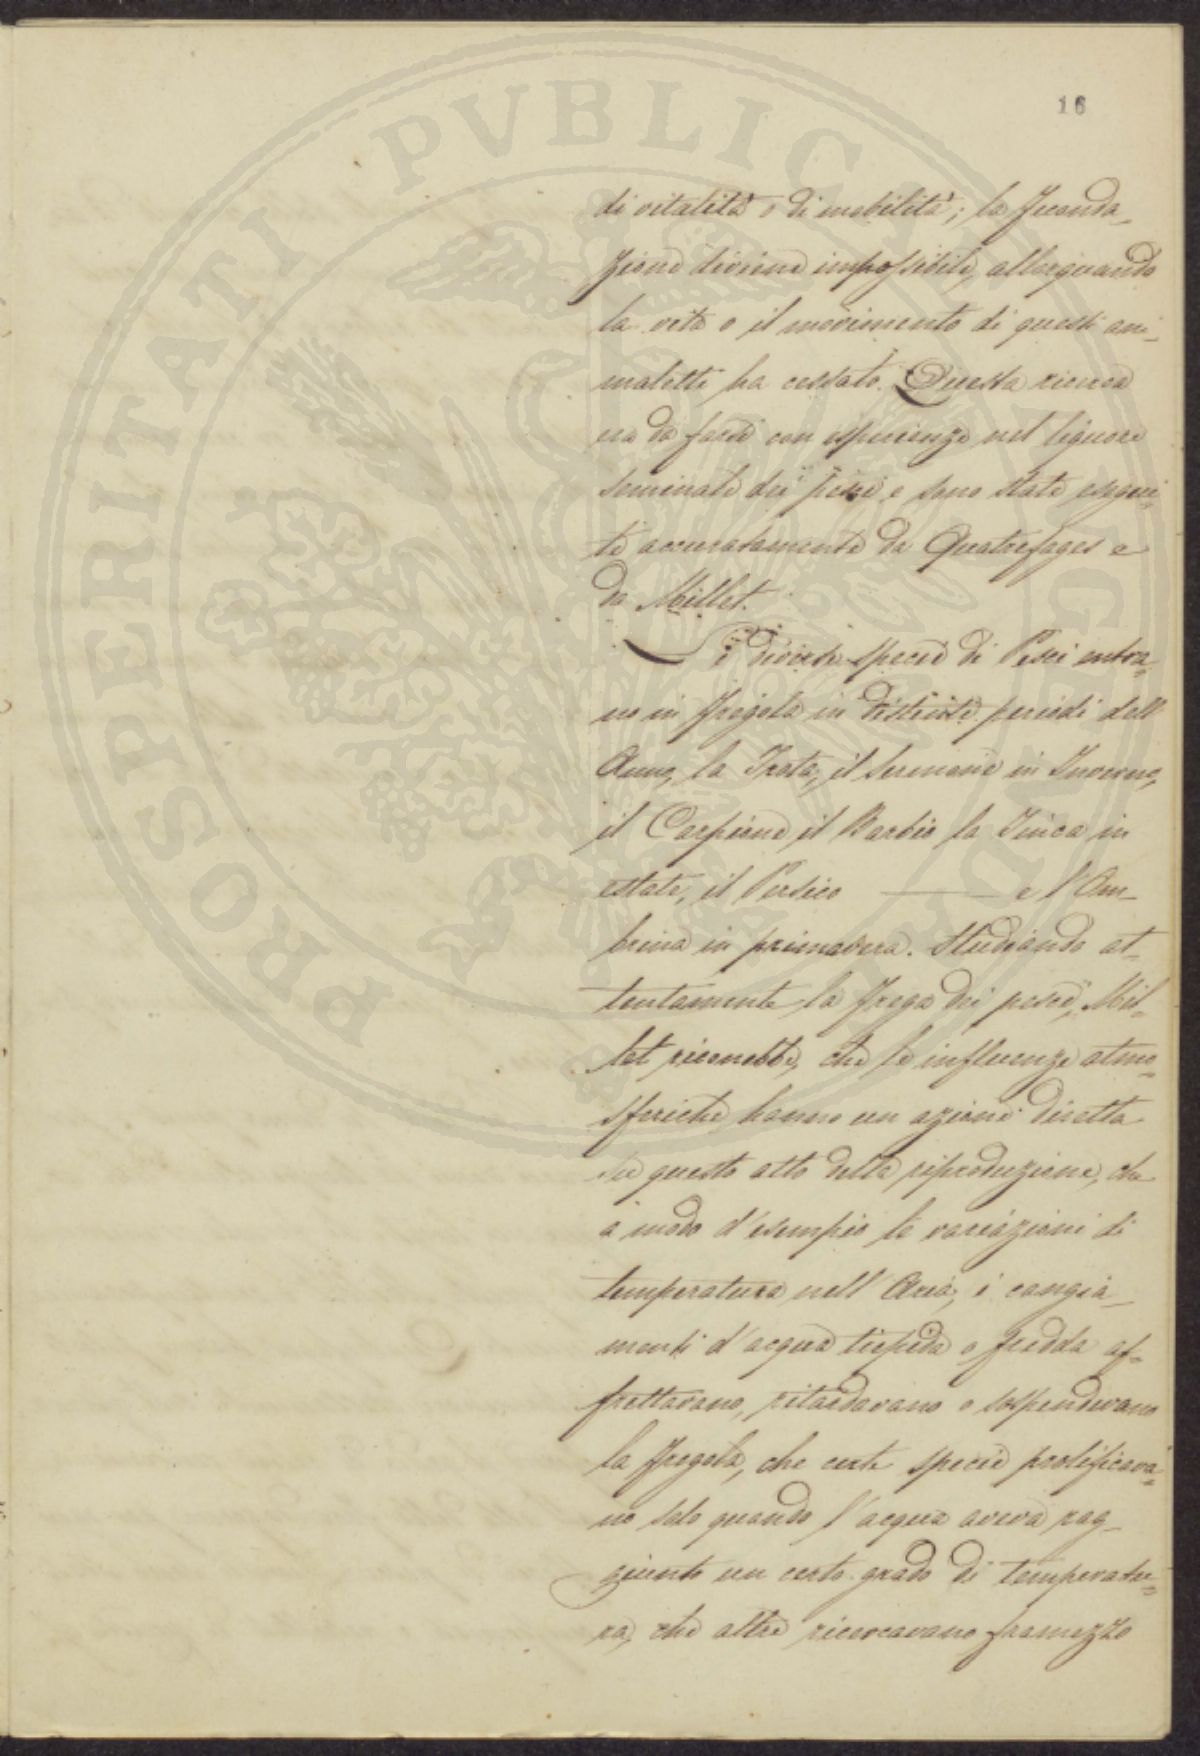 16
di vitalità o di mobilità; la feconda_
zione diviene impossibile, allorquando
la vita o il movimento di questi ani_
maletti ha cessato. Questa ricerca
era da farsi con esperienze nel liquore
seminale dei pesci e sono state esegui=
te accuratamente da Quatrefages e
da Millet.
Le diverse specie di Pesci entra=
no in fregola in distinte periodi dell'
Anno, la Trota, il Sermone in Inverno,
il Carpione il Barbio la Tinca in
estate, il Persico ——— e l'Om_
brina in primavera. Studiando at_
tentamente la frega dei pesci, Mil=
let riconobbe, che le influenze atmo=
sferiche hanno un azione diretta
su questo atto della riproduzione, che
a modo d'esempio le variazioni di
temperatura nell'Aria, i cangia_
menti d'acqua tiepida o fredda af=
frettavano, ritardavano o sospendevano
la fregola, che certe specie prolificava=
no solo quando l'acqua aveva rag_
giunto un certo grado di temperatu=
ra, che altre ricercavano framezzo
PROSPERITATI PVBLICAE AVGENDAE